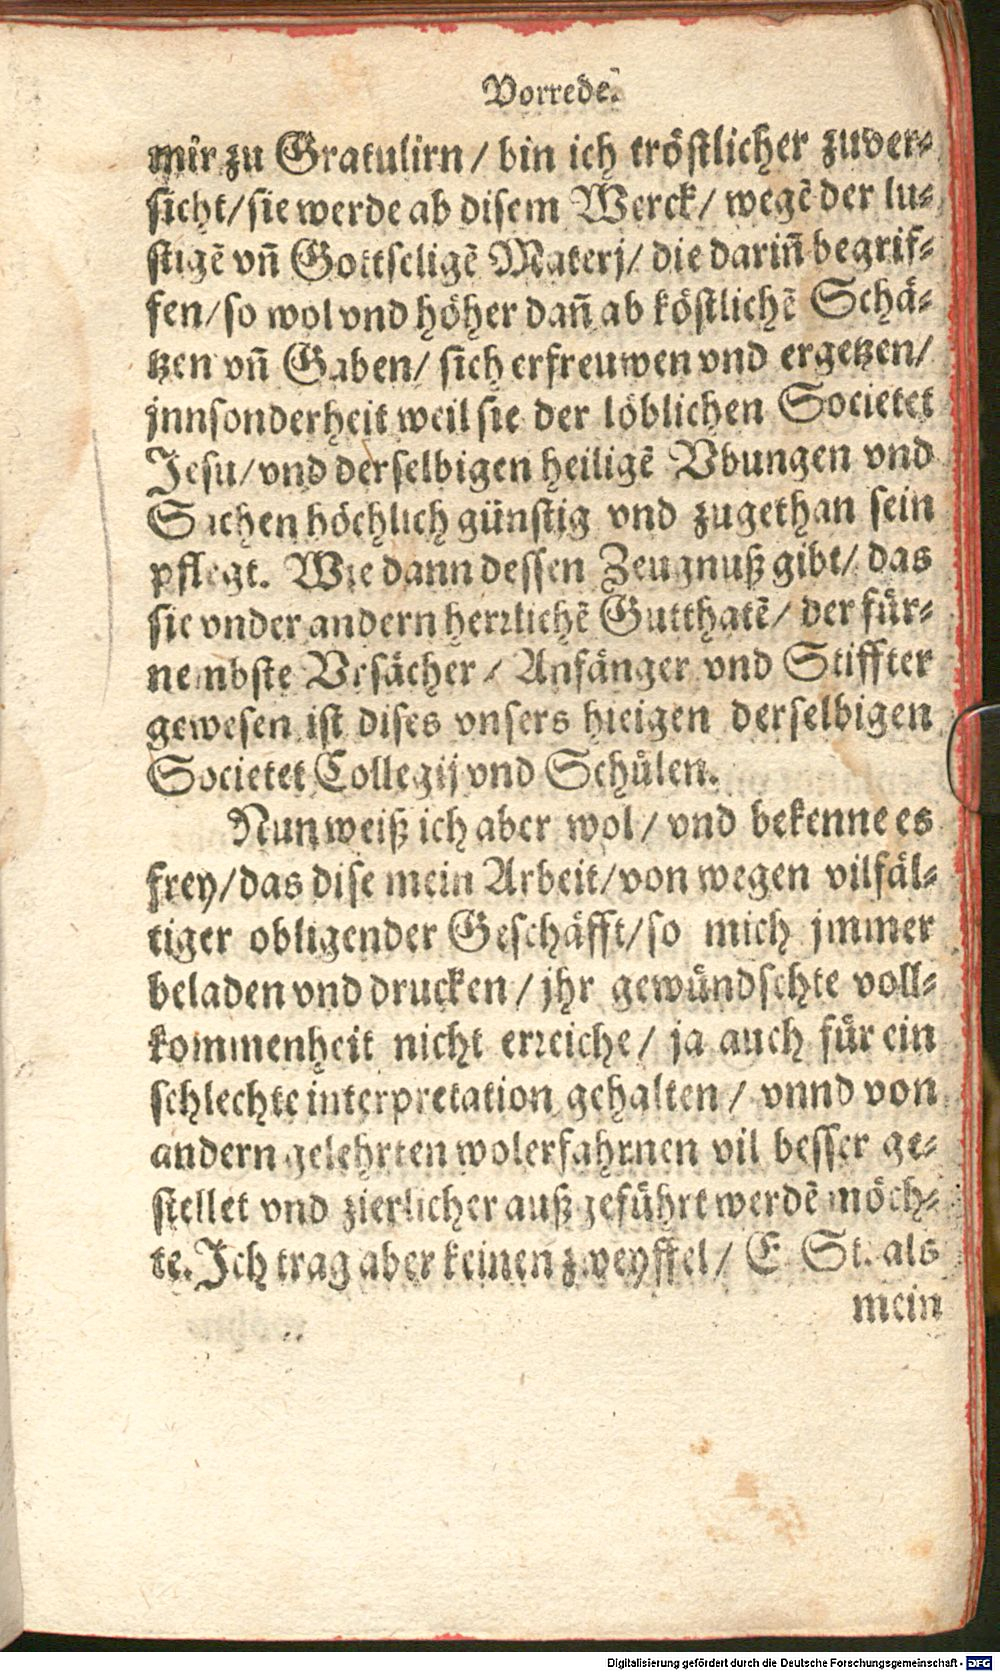 Vorrede.
mir zu Gratulirn / bin ich tröstlicher zuver⸗
sicht/ sie werde ab disem Werck/ wegē der lu⸗
stigē vn̄ Gottseligē Materj/ die darin̄ begrif⸗
fen/ so wol vnd höher dan̄ ab köstlichē Schä⸗
tzen vn̄ Gaben/ sich erfreuwen vnd ergetzen/
jnnsonderheit weil sie der löblichen Societet
Jesu/ vnd derselbigen heiligē Vbungen vnd
Sachen höchlich günstig vnd zugethan sein
pflegt. Wie dann dessen Zeugnuß gibt/ das
sie vnder andern herrlichē Gutthatē/ der für⸗
nembste Vrsächer / Anfänger vnd Stiffter
gewesen ist dises vnsers hieigen derselbigen
Societet Collegij vnd Schůlen.
Nun weiß ich aber wol/ vnd bekenne es
frey/ das dise mein Arbeit/ von wegen vilfäl⸗
tiger obligender Geschäfft/ so mich jmmer
beladen vnd drucken / jhr gewündschte voll⸗
kommenheit nicht erreiche/ ja auch für ein
schlechte interpretation gehalten / vnnd von
andern gelehrten wolerfahrnen vil besser ge⸗
stellet vnd zierlicher außgeführt werdē möch⸗
te. Ich trag aber keinen zweyffel/ E. St. als
mein
Digitalisierung gefördert durch die Deutsche Forschungsgemeinschaft - DFG